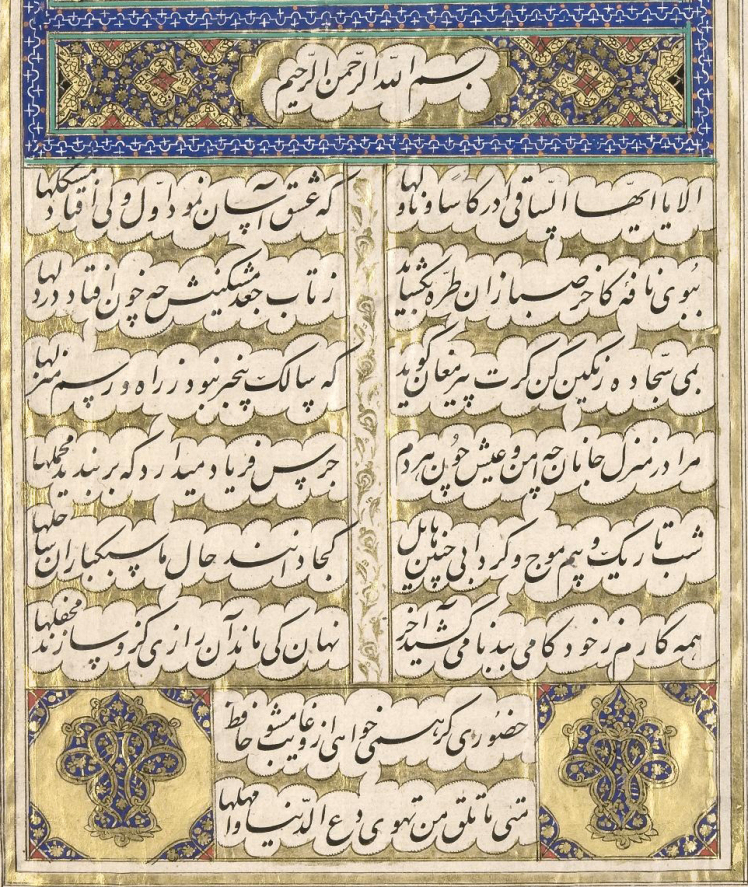 بسم الله الرحمن الرحیم
الا یا ایّها السّاقی ادر کاسًا و ناولها که عشق آسان نمود اوّل ولی افتاد مشکلها
ببوی نافهٔ کاخر صبا زان طرّه بگشاید ز تاب جعد مشکینش چه خون افتاد در دلها
بمی سجّاده رنگین کن کرت پیر مغان کوید که سالک بیخبر نبود ز راه و رسم منزلها
مرا در منزل جانان چه امن و عیش چون هردم جرس فریاد میدارد که بربندید محملها
شب تاریک و بیم موج و کردابی چنین هایل کجا دانند حال ما سبکباران ساحلها
همه کارم ز خود کامی ببدنامی کشید آخر نهان کی ماند آن رازی کزو سازند محفلها
حضوری کر همی خواهی ازو غایب مشو حافظ
متی ما تلق من تهوی دع الدّنیا و امهلها